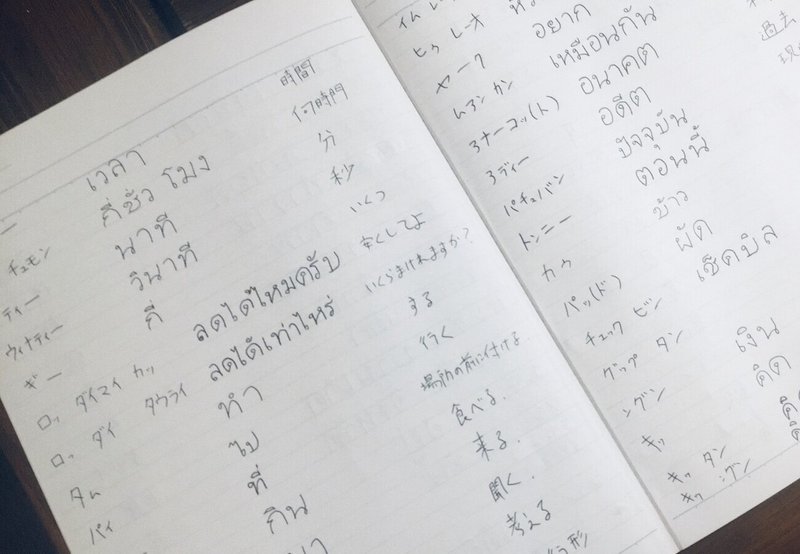 เวลา 時間
チュモン กี่ชั่วโมง 何時間
ティー นาที 分
ウィナティー วินาที 秒
ギー กี่ いくつ
ロッ ダイマイ カッ ลดได้ไหมครับ 安くしてよ
ロッ ダイ タウライ ลดได้เท่าไหร่ いくらまけれますか?
タム ทำ する
パイ ไป 行く
ที่ 場所の前に付ける.
กิน 食べる.
来る.
聞く.
考える
ヒゥ レーオ
ヤーク อยาก
ムアン カン เหมือนกัน
アナーコッ(ト) อนาคต
アディー อดีต 過去
パチュバン ปัจจุบัน 現
トンニー ตอนนี้
カウ ข้าว
パッ(ド) ผัด
チェック ビン เช็คบิล
グップ タン
ングン เงิน
キッ คิด
キッ タン
キッ ングン